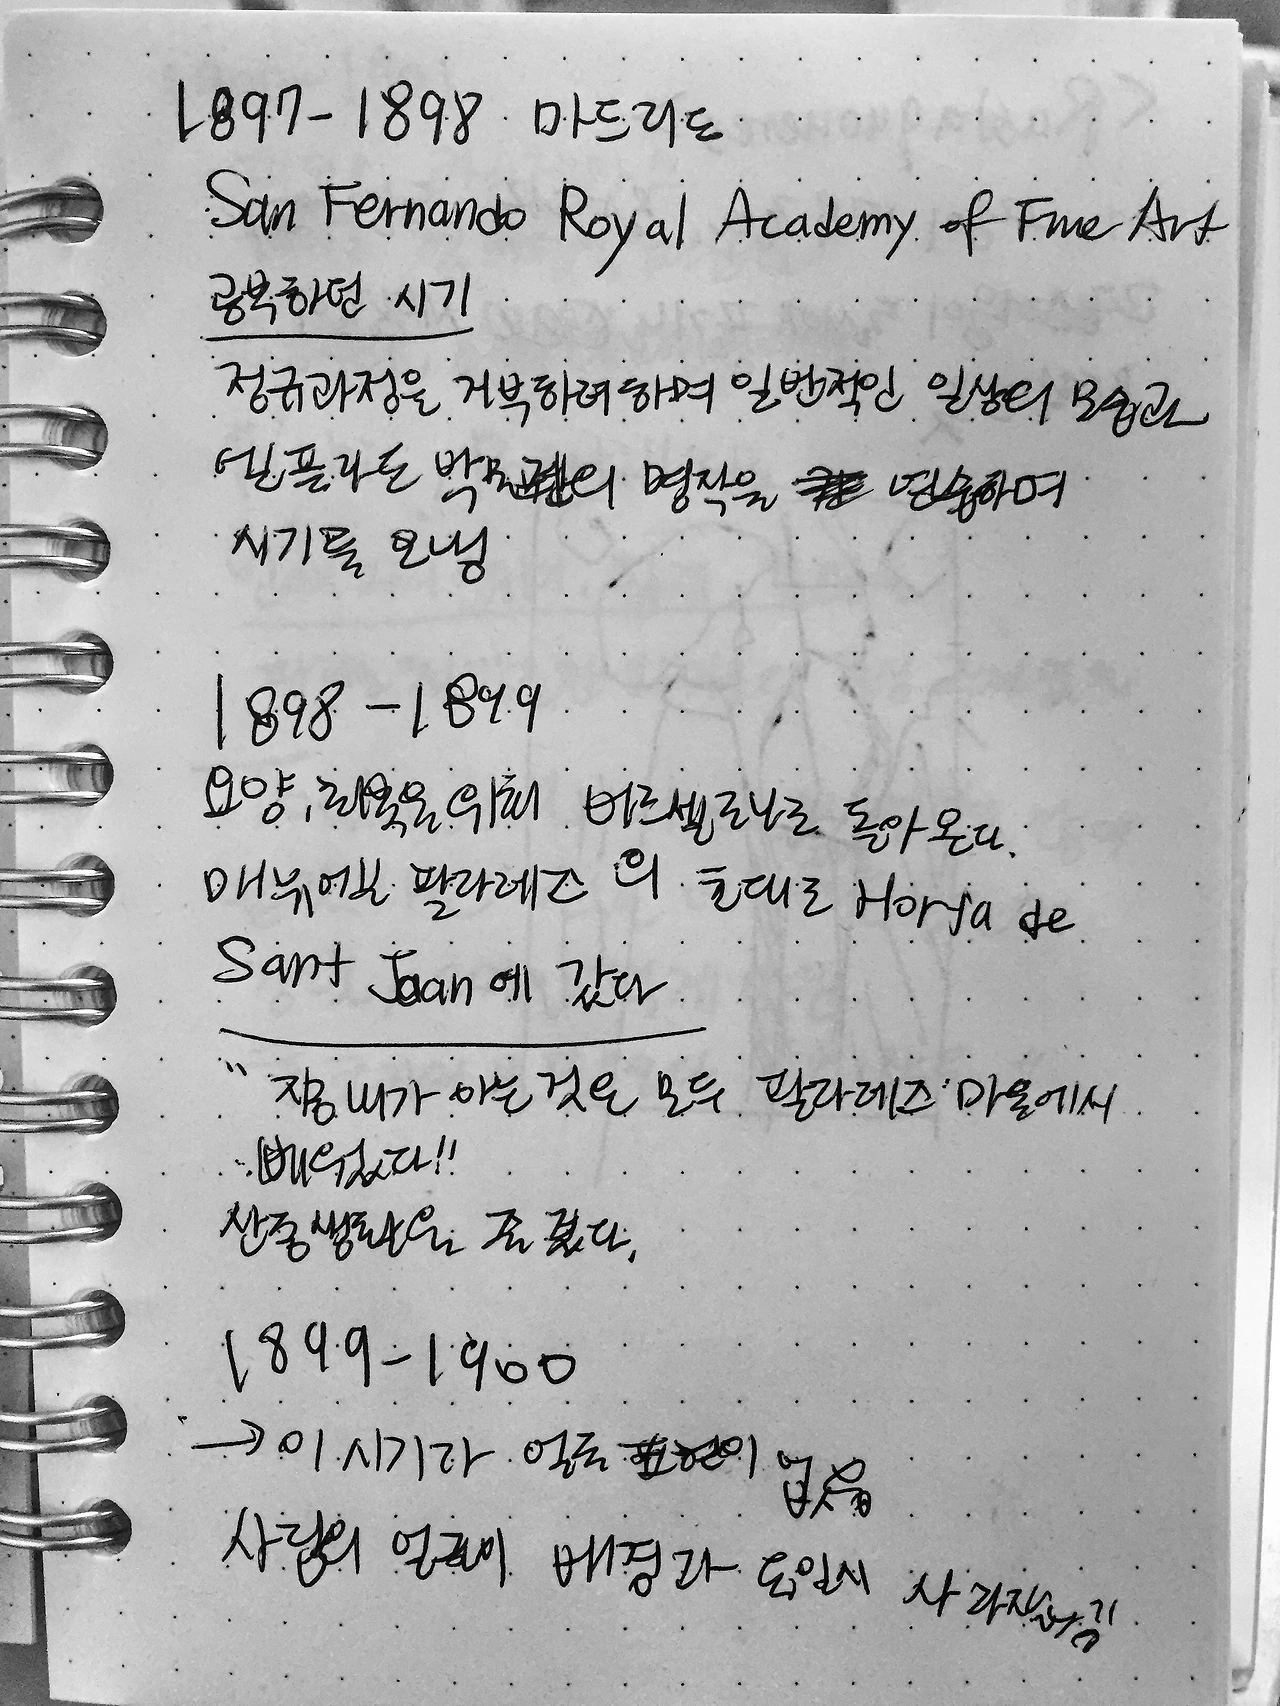 1897-1898 마드리드
San Fernando Royal Academy of Fine Art
공복하던 시기
정규과정을 거부하려하며 일반적인 일상의 모습과
엘프라도 박물관의 명작을 연습하며
시기를 보냄
1898-1899
요양, 위해 바르셀로나로 돌아온다.
매뉘에 팔라레즈의 초대로 Horta de
Sant Joan에 갔다
" 지용씨가 아는것은 모두 팔라레즈 마을에서
배웠다!!
산중생활을 즐겼다.
1899-1900
→ 이시기라 얼로 표현이 없음
사람의 얼굴이 배경과 동일시 사라져